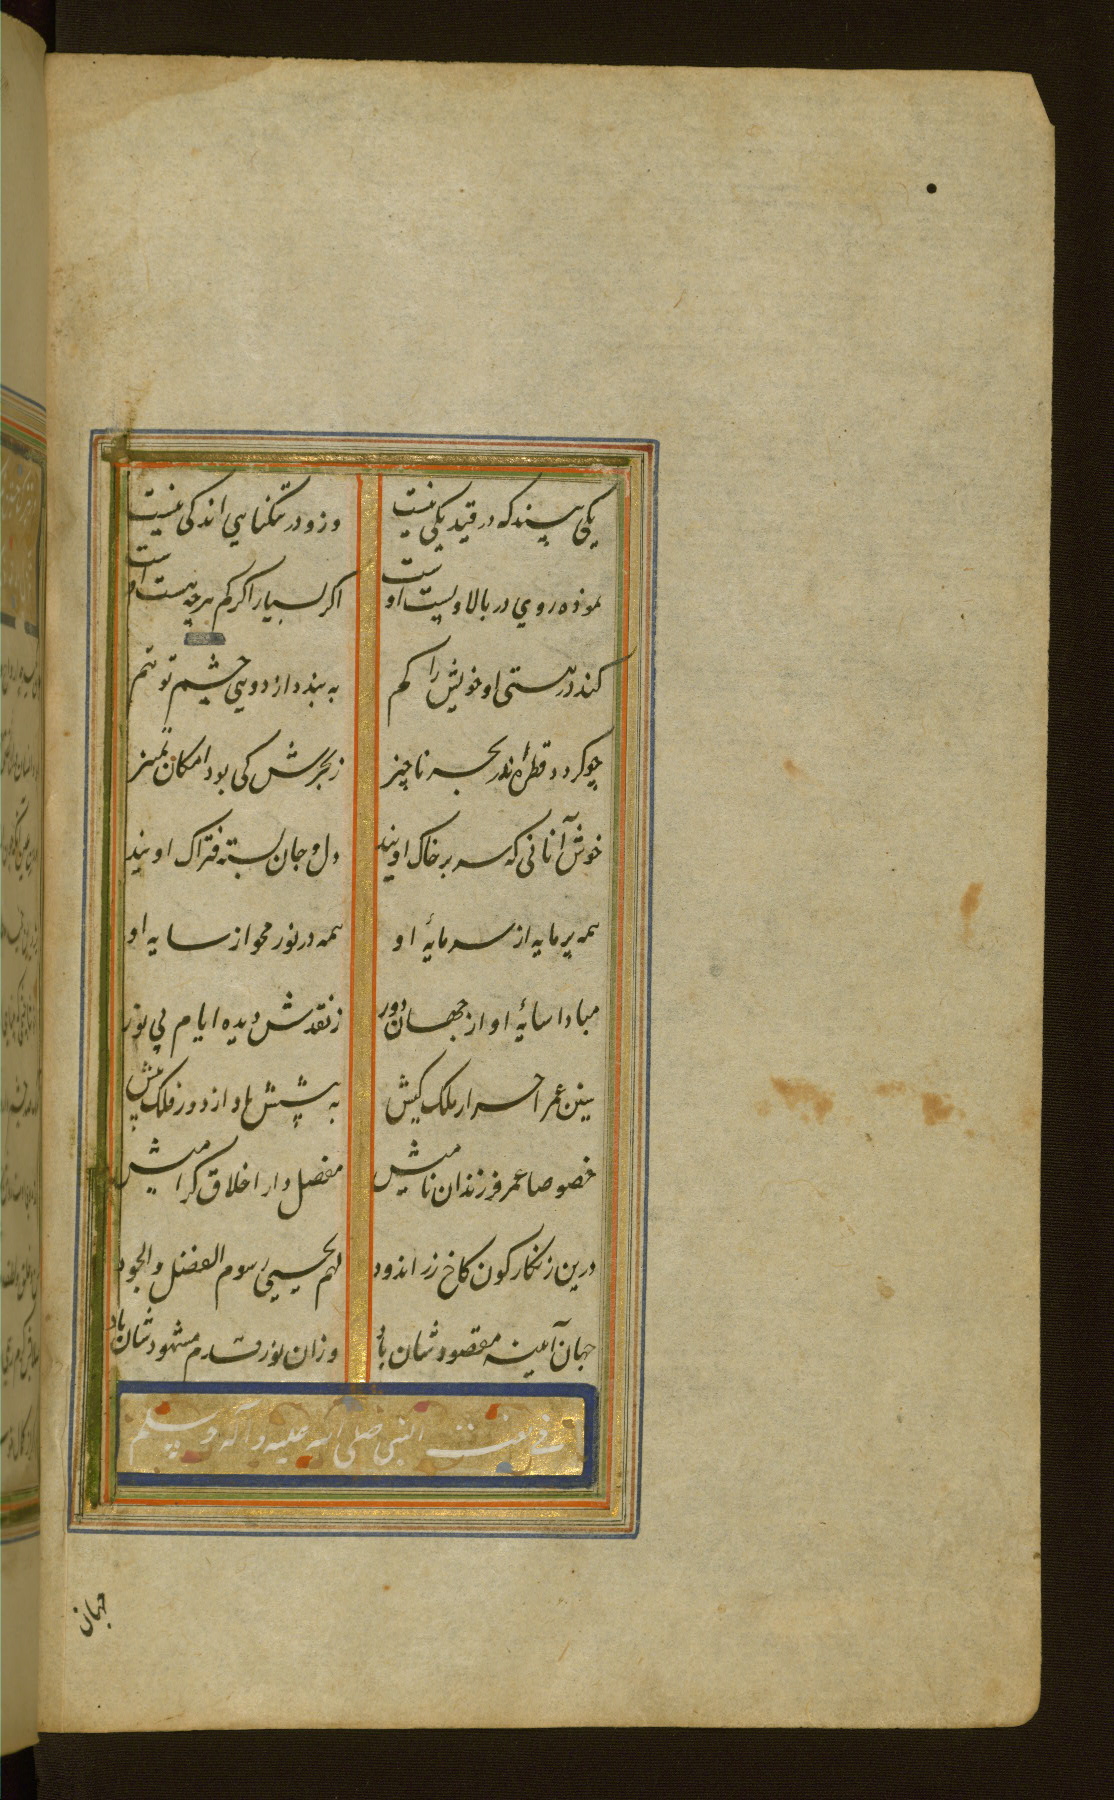 یکی بیند که در قید یکی نیست وزو در تنگنای اندکی نیست
نموده روی در بالا و پست اوست اگر بسیار اگر کم هرچه هست اوست
کند در هستی او خویش را گم به بندد از دویی چشم توهم
چو گردد قطره اندر بحر ناچیز ز بحرش کی بود امکان تمییز
خوش آنانی که سر بر خاک اویند دل و جان بسته فتراک اویند
همه پرمایه از سرمایهٔ او همه در نور محو از سایه او
مبادا سایهٔ او از جهان دور ز نقدش دیده ایام بی نور
سنین عمر احرار ملک کیش به شش باد از دور فلک بیش
خصوصا عمر فرزندان نامیش مفضل دار اخلاق گرامیش
درین زنگارگون کاخ زر اندود لهم یحیی رسوم الفضل والجود
جهان آیینه مقصودشان باد وزان نور قدم مشهودشان باد
فی نعت النبی صلی الله علیه و آله و سلم
جهان